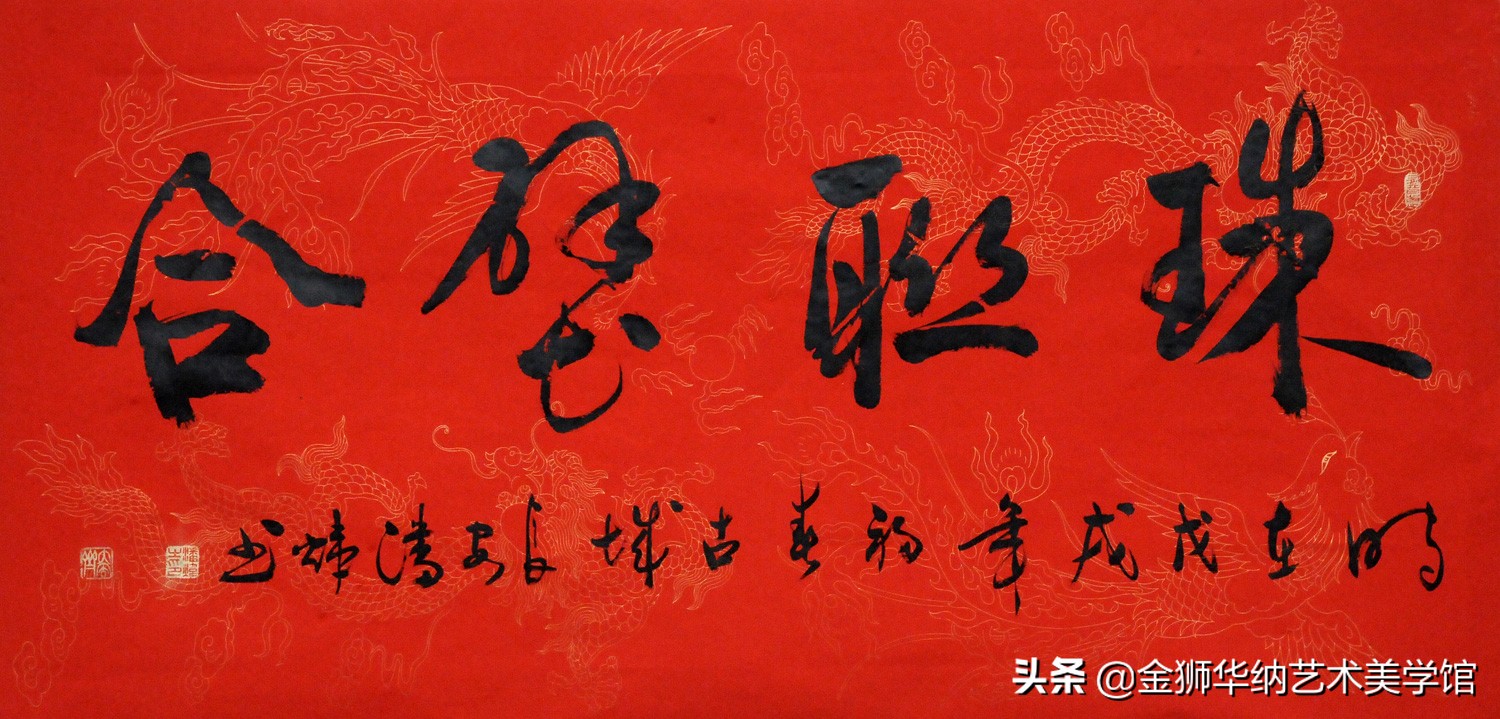 珠联璧合
时在戊戌年初春古城长安潘炜书
头条 @金狮华纳艺术美学馆